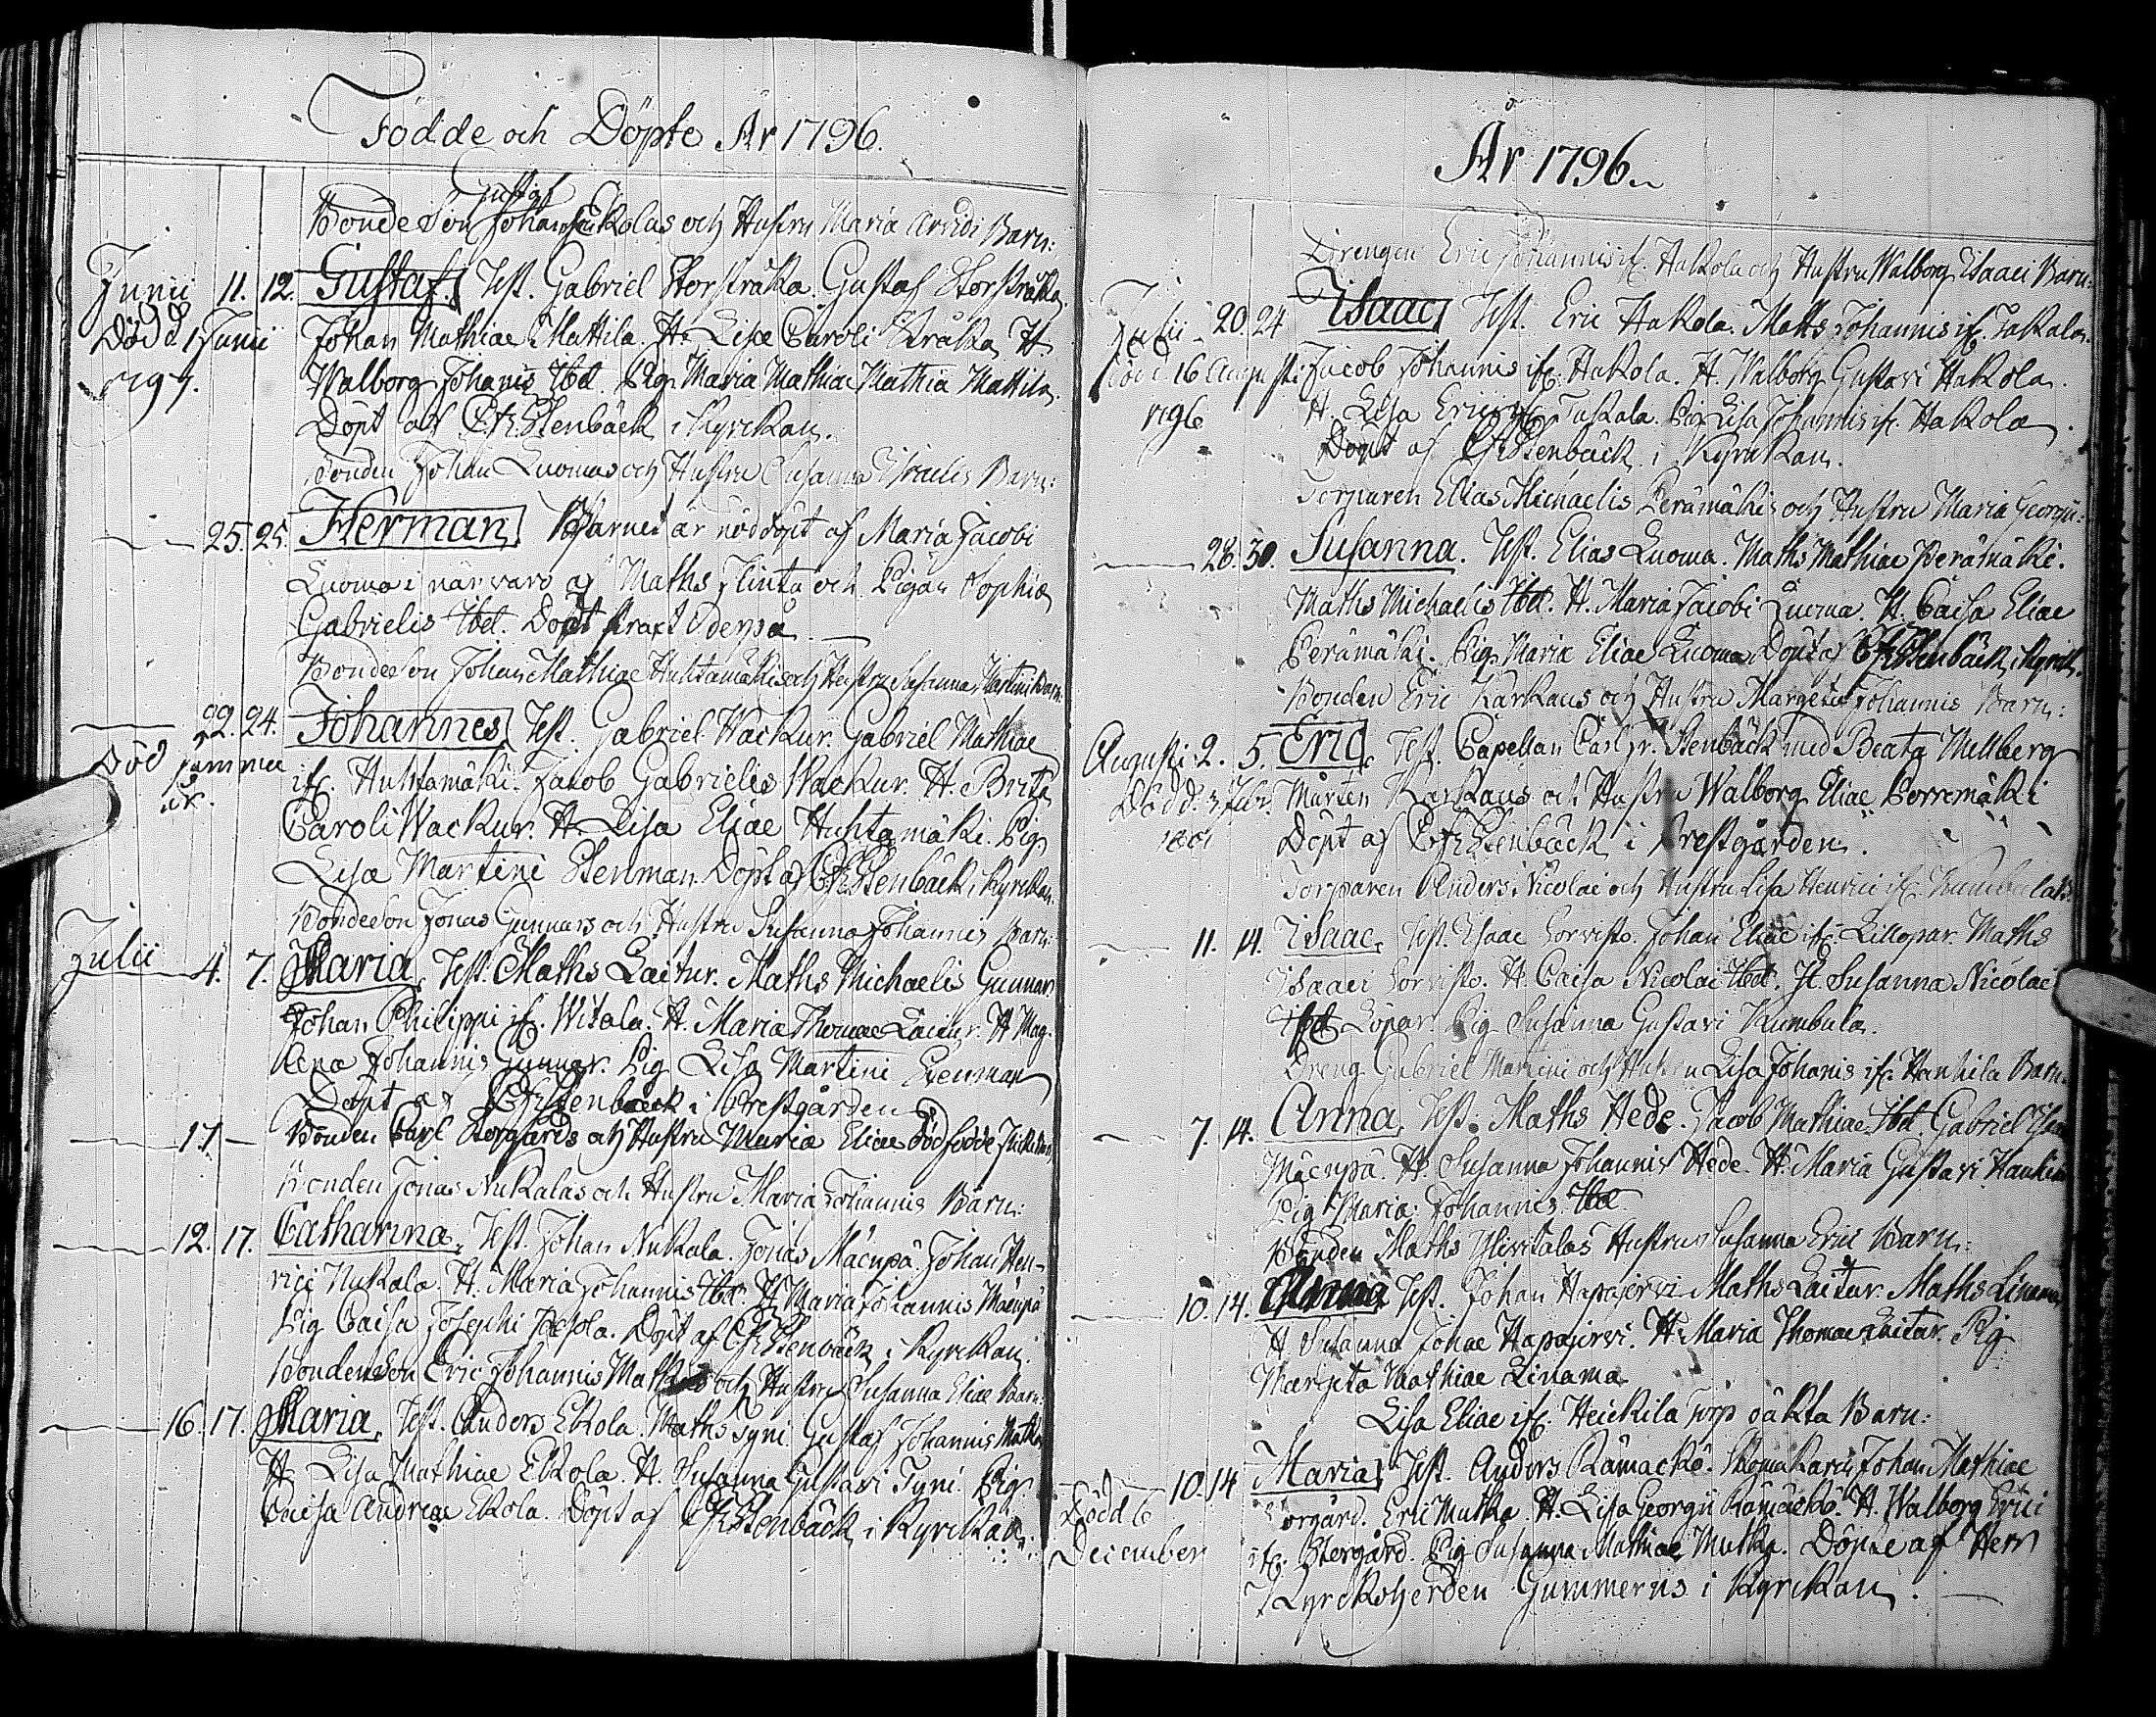 Födde och Döpte År 1796.
Gustaf
Bonde Son Johan Kolas och Hustru Maria Arvidi Barn:
Junii 11. 12. Gustaf. Test. Gabriel Storstråka. Gustaf Storstråka.
Död d. 1 Junii Johan Mathiae Mattila. H. Lisa Caroli Stråka. H.
1797. Walborg Johanis Ibd. Pig. Maria Mathiae Mathiae Mattila.
Döpt af C. Fr. Stenbäck i Kyrckan.
Bonden Johan Luomas och Hustru Susanna Barn:
25. 25. Herman Barnet är nöddöpt af Maria Jacobi
Luoma i närvaro af Maths Flinta och Pigan Sophia
Gabrielis Ibd. Döpt straxt derpå
Bonde Son Johan Mathiae Huhtamäkis och Hustru Susanna Martini Barn:
22. 24. Johannes Test. Gabriel Wackur. Gabriel Mathiae
Död samma if. Huhtamäki. Jacob Gabrielis Wackur. H. Brita
år. Caroli Wackur. H. Lisa Eliae Huhtamäki. Pig.
Lisa Martini Stenman. Döpt af C. Fr. Stenbäck i Kyrckan.
Bonde Son Jonas Gunnars och Hustru Susanna Johannis Barn:
Julii 4. 7. Maria. Test. Maths Laitur. Maths Michaelis Gunnar.
Johan Philippi if. Witala. H. Maria Thomae Laitur. H. Mag-
lena Johannis Gunnar. Pig Lisa Martini Stenman
Döpt af C. Fr. Stenbäck i Prestgården
17. - Bonden Carl Storgårds och Hustru Maria Eliae dödfödde
Bonden Jonas Nukalas och Hustru Maria Johannis Barn:
12. 17. Catharina. Test. Johan Nukala. Jonas Mäenpä. Johan Hen-
rici Nukala. H. Maria Johannis Ibd. H. Maria Johannis Mäenpä
Pig Caisa Josephi Döpt af C. Fr. Stenbäck i Kyrckan.
Bonde Son Eric Johannis och Hustru Susanna Eliae Barn:
16. 17. Maria. Test. Anders Ekola. Maths Tyni. Gustaf Johannis
H. Lisa Mathiae Ekola. H. Susanna Gustavi Tyni. Pig.
Caisa Andreae Ekola. Döpt af C. Fr. Stenbäck i Kyrckan.
År 1796.
Drengen Eric Johannis if. Hakola och Hustru Walborg Isaaci Barn:
Julii 20. 24 Isaac Test. Eric Hakola. Maths Johannis if.
Död 16 Augusti Jacob Johannis if. Hakola. H. Walborg Gustavi Hakola.
1796 H. Lisa Erici Pig Lisa Johannis if. Hakola.
Döpt af C. Fr. Stenbäck i Kyrckan.
Torparen Elias Michaelis Perämäkis och Hustru Maria Georgii:
28. 30. Susanna. Test. Elias Luoma. Maths Mathiae Perämäki.
Maths Michaelis Ibd. H. Maria Jacobi Luoma. H. Caisa Eliae
Perämäki. Pig. Maria Eliae Luoma. Döpt af C. Fr. Stenbäck i Kyrck.
Bonden Eric Karkaus och Hustru Margeta Johannis Barn:
Augusti 2. 5. Eric. Test. Capellan Carl Fr. Stenbäck med Beata Mellberg
Död d. 3 Febr. Mårten Karkaus och Hustru Walborg Eliae Porremäki
1801 Döpt af C. Fr. Stenbäck i Prestgården.
Torparen Anders Nicolai och Hustru Lisa Henrici if.
11. 14. Isaac. Test. Isaac Sorvisto. Johan Eliae if. Lillopar. Maths
Isaaci Sorvisto. H. Caisa Nicolai Ibd. H. Susanna Nicolai
Löpar. Pig Susanna Gustavi Kumbula.
Dreng Gabriel Martini och Hustru Lisa Johanis if. Hanhila Barn.
7. 14. Anna. Test. Maths Hede. Jacob Mathiae Ibd. Gabriel
Mäenpä. H. Susanna Johannis Hede. H. Maria Gustavi
Pig Maria Johannis Ibd.
Bonden Maths Ylivitalas Hustru Susanna Erici Barn:
10. 14. Anna Test. Johan Hapajervi. Maths Laitur. Maths Linama
H. Susanna Jonae Hapajervi. H. Maria Thomae Laitur. Pig
Margeta Mathiae Linama
Lisa Eliae if. Heickila Torp oäkta Barn:
10. 14 Maria. Test. Anders Rämackö. Johan Mathiae
Död d. 6 Eric Mutka. H. Lisa Georgii Rämäckö. H. Walborg Erici
December if. Pig Susanna Mathiae Mutka. Döpte af Herr
Kyrckoherden Gummerus i Kyrckan.